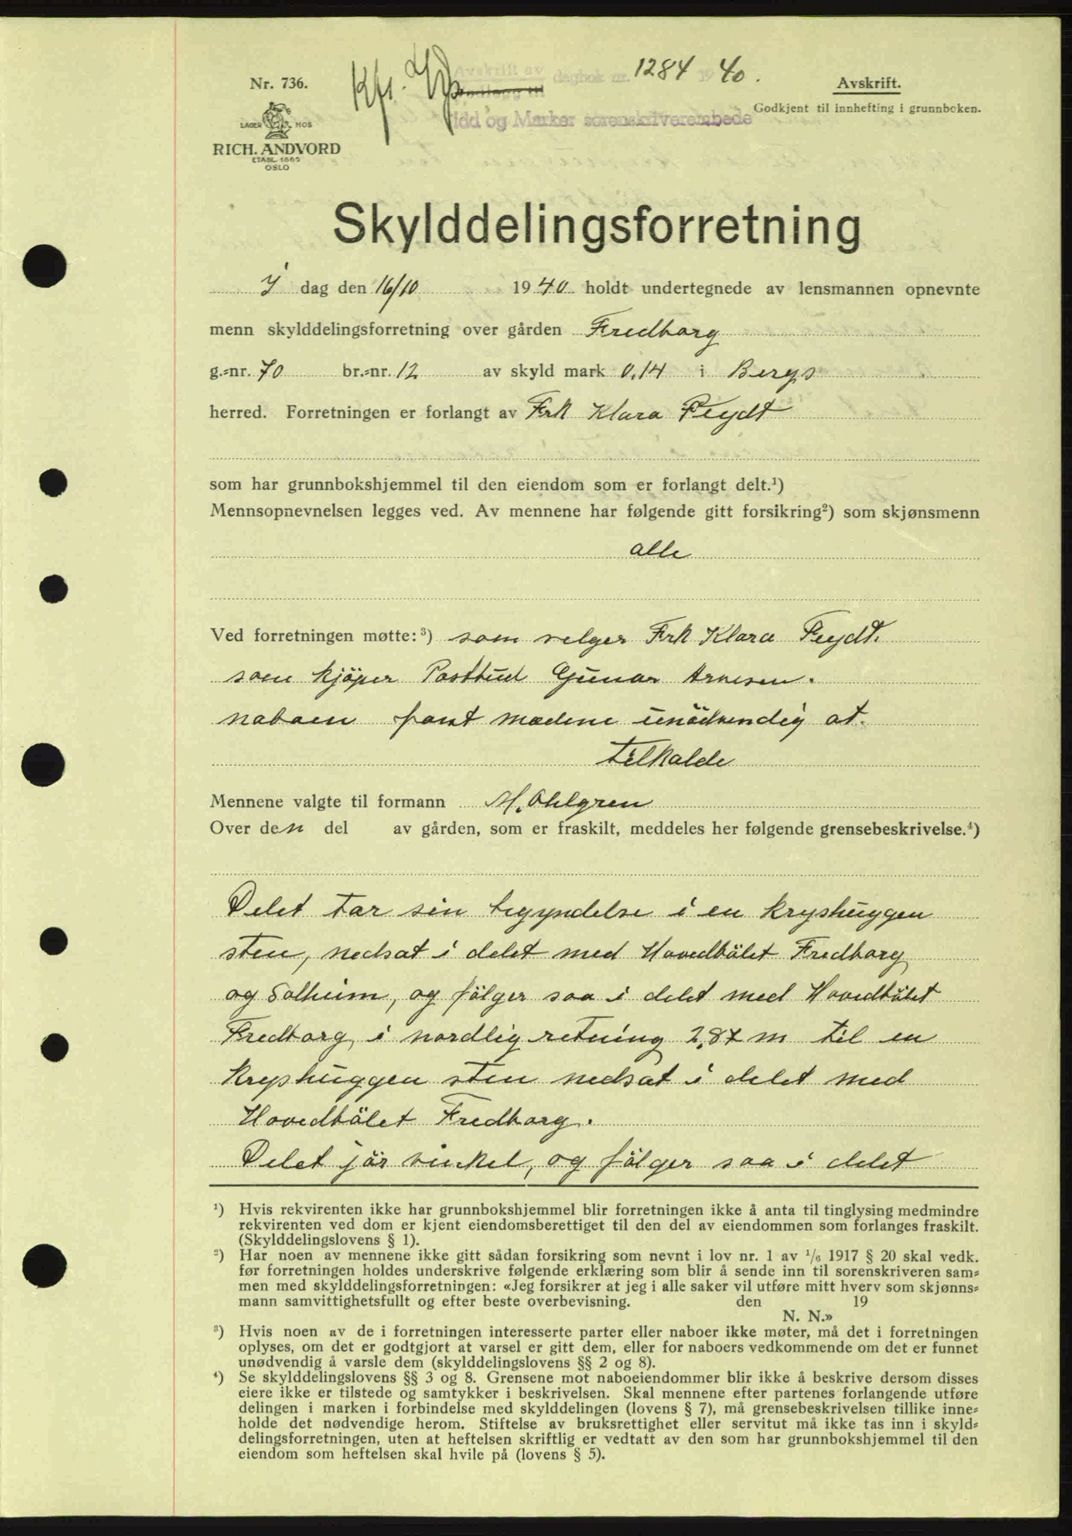 Nr. 736.
LAGER HOS
RICH. ANDVORD
ETABL. 1865
OSLO
Kfr.
Avskrift av
dagbok nr. 1284 1940.
Idd og Marker sorenskriverembede
Avskrift.
Godkjent til innhefting i grunnboken.
Skylddelingsforretning
I dag den 16/10 1940 holdt undertegnede av lensmannen opnevnte
menn skylddelingsforretning over gården Fredborg
g.=nr. 70 br.=nr. 12 av skyld mark 0.14 i Bergs
herred. Forretningen er forlangt av Frk Klara Feydt
som har grunnbokshjemmel til den eiendom som er forlangt delt.¹)
Mennsopnevnelsen legges ved. Av mennene har følgende gitt forsikring²) som skjønsmenn
alle
Ved forretningen møtte:³) som selger Frk Klara Feydt.
som kjöper Postbud Gunar Arnesen.
naboen fant mædene unödvendig at.
tilkalde
Mennene valgte til formann M. Ohlgren
Over den del av gården, som er fraskilt, meddeles her følgende grensebeskrivelse.⁴)
Delet tar sin begyndelse i en kryshuggen
sten, nedsat i delet med Hovedbölet Fredborg
og Solheim, og fölger saa i delet med Hovedbölet
Fredborg, i nordlig retning 2,87 m til en
kryshuggen sten nedsat i delet med
Hovedbölet Fredborg.
Delet jör vinkel, og fölger saa i delet
¹) Hvis rekvirenten ikke har grunnbokshjemmel blir forretningen ikke å anta til tinglysing medmindre
rekvirenten ved dom er kjent eiendomsberettiget til den del av eiendommen som forlanges fraskilt.
(Skylddelingslovens § 1).
²) Har noen av mennene ikke gitt sådan forsikring som nevnt i lov nr. 1 av ¹/₆ 1917 § 20 skal vedk.
før forretningen holdes underskrive følgende erklæring som blir å sende inn til sorenskriveren sam=
men med skylddelingsforretningen: «Jeg forsikrer at jeg i alle saker vil utføre mitt hverv som skjønns=
mann samvittighetsfullt og efter beste overbevisning. den 19
N. N.»
³) Hvis noen av de i forretningen interesserte parter eller naboer ikke møter, må det i forretningen
oplyses, om det er godtgjort at varsel er gitt dem, eller for naboers vedkommende om det er funnet
unødvendig å varsle dem (skylddelingslovens §§ 2 og 8).
⁴) Se skylddelingslovens §§ 3 og 8. Grensene mot naboeiendommer blir ikke å beskrive dersom disses
eiere ikke er tilstede og samtykker i beskrivelsen. Skal mennene efter partenes forlangende utføre
delingen i marken i forbindelse med skylddelingen (lovens § 7), må grensebeskrivelsen tillike inne=
holde det nødvendige herom. Stiftelse av bruksrettighet eller servitut må ikke tas inn i skyld=
delingsforretningen, uten at heftelsen skriftlig er vedtatt av den som har grunnbokshjemmel til den
eiendom som heftelsen skal hvile på (lovens § 5).